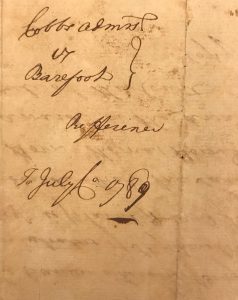 Cobbs admrs
vs
Barefoot
Refference
To July Ct 1789